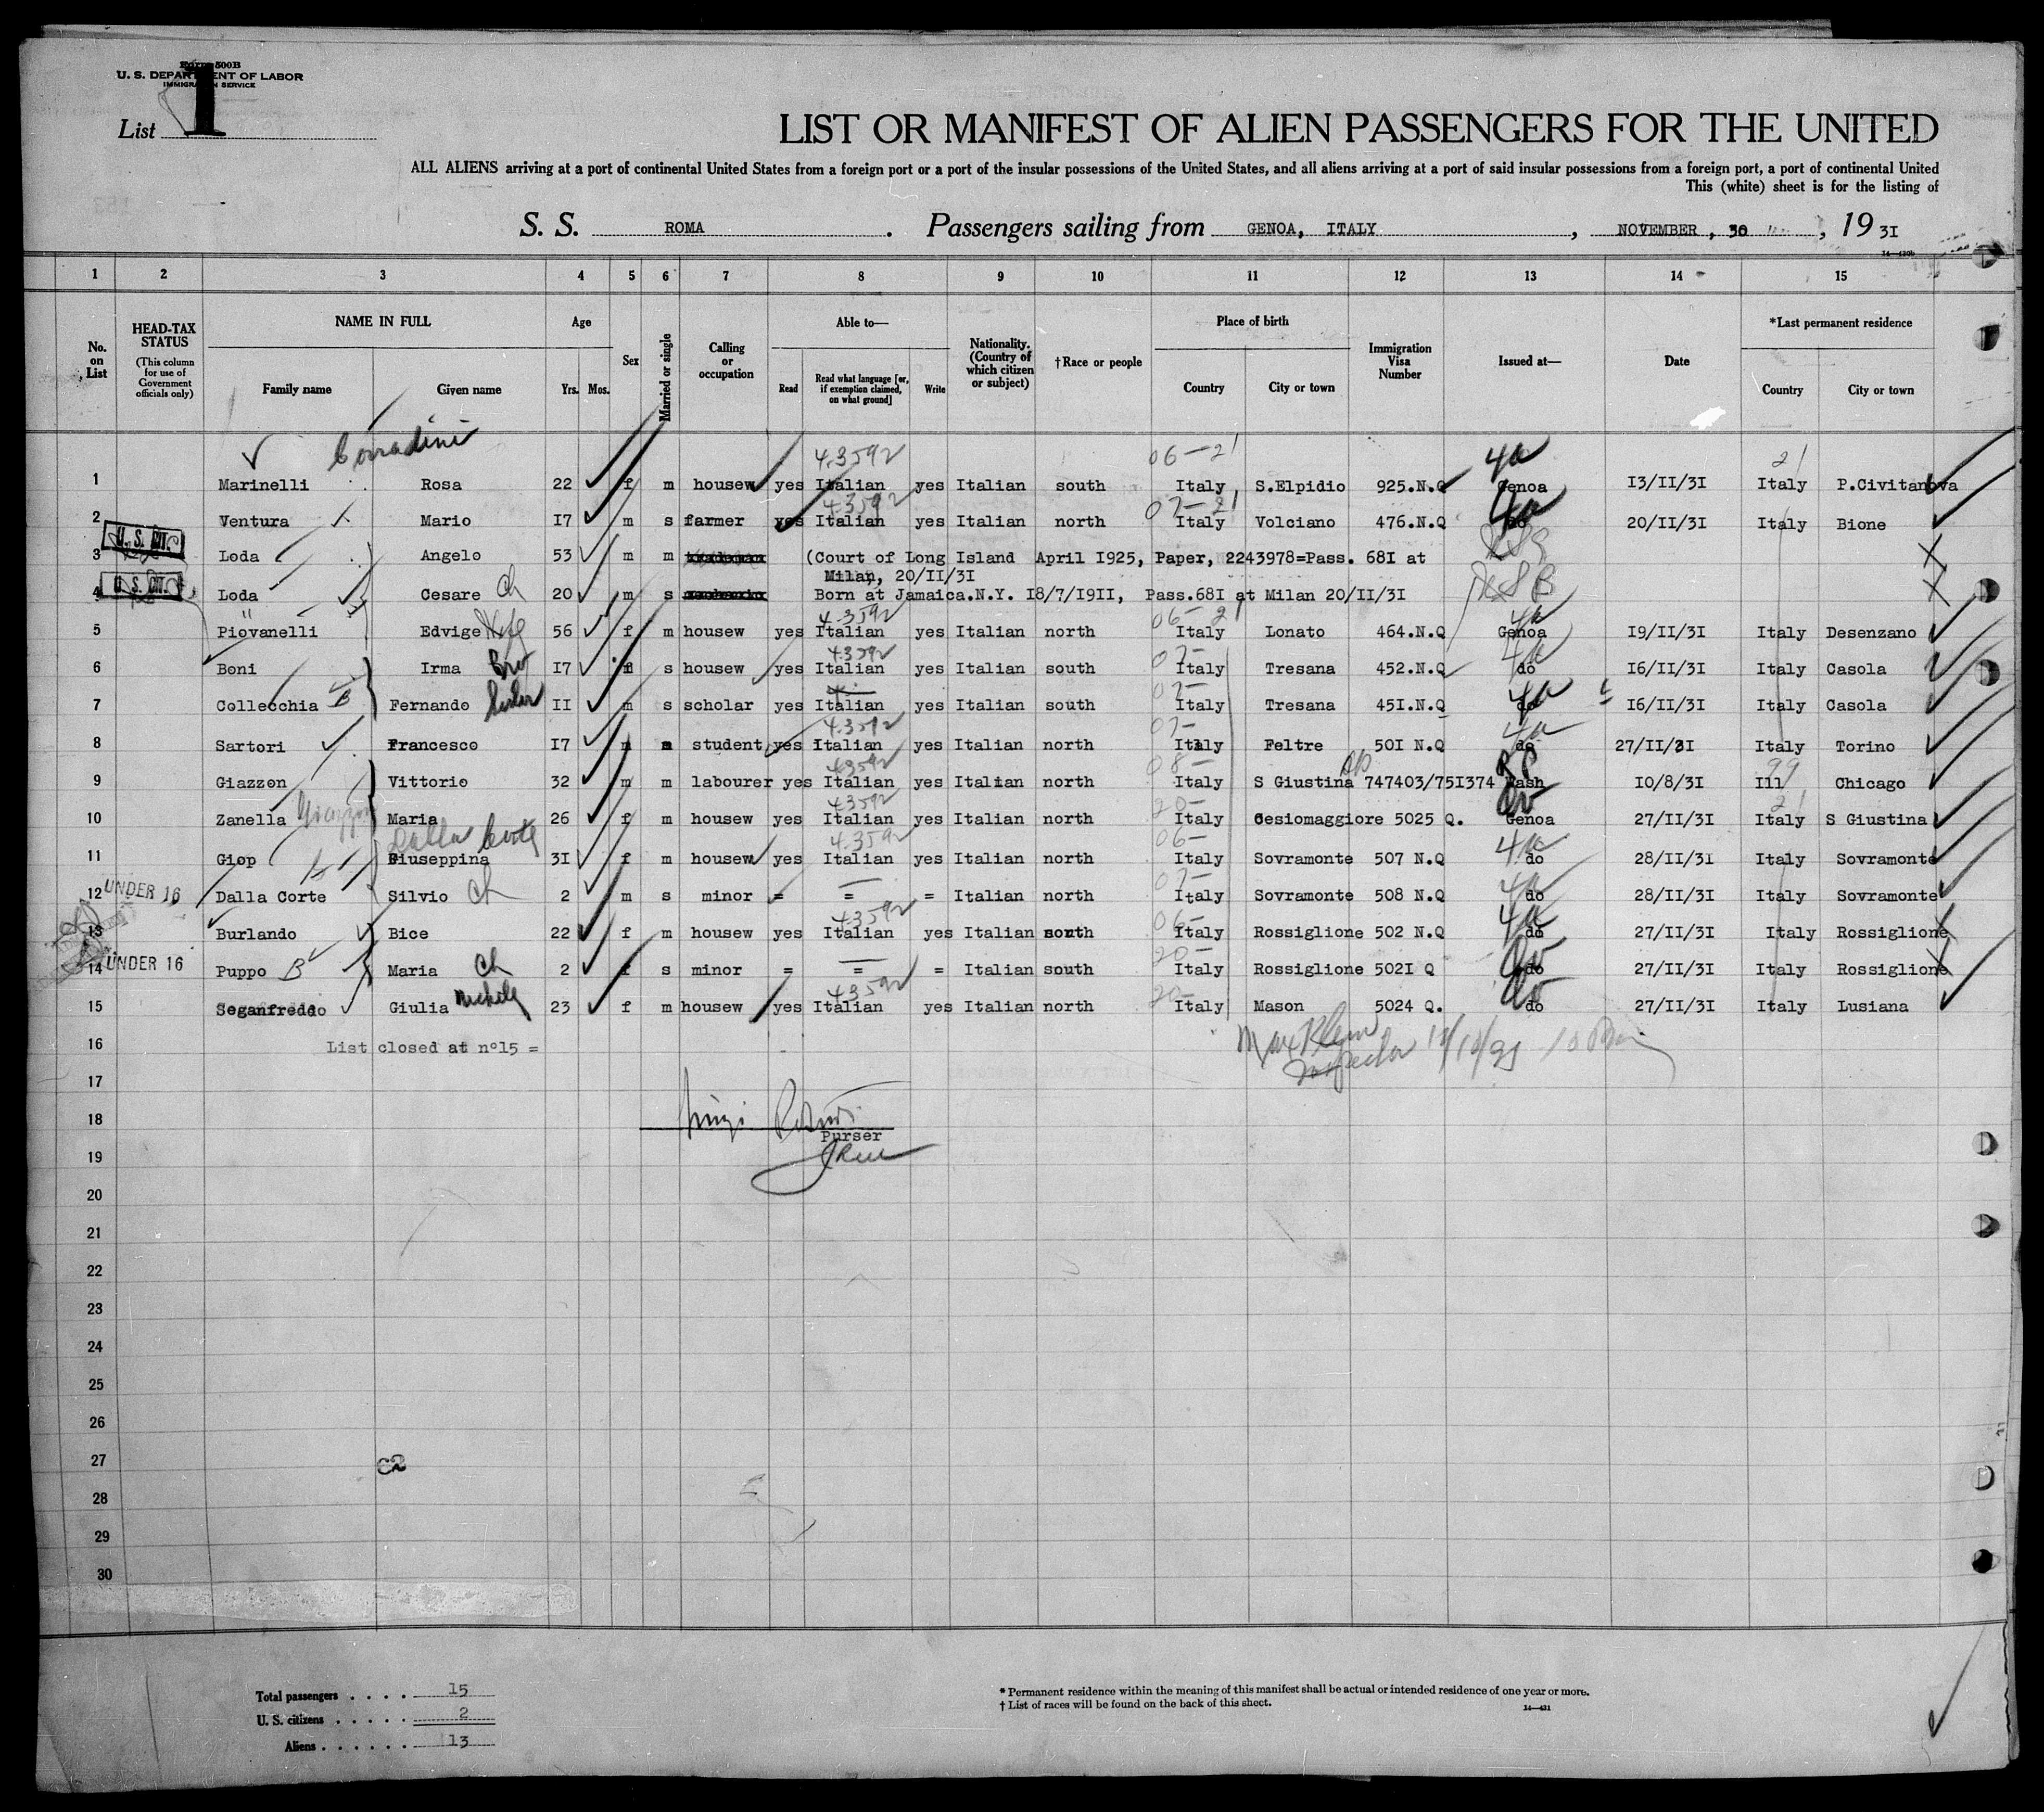 Form 500B
U. S. DEPARTMENT OF LABOR
IMMIGRATION SERVICE
List 1
LIST OR MANIFEST OF ALIEN PASSENGERS FOR THE UNITED
ALL ALIENS arriving at a port of continental United States from a foreign port or a port of the insular possessions of the United States, and all aliens arriving at a port of said insular possessions from a foreign port, a port of continental United
This (white) sheet is for the listing of
S. S. ROMA. Passengers sailing from GENOA, ITALY, NOVEMBER, 30, 1931
1 2 3 4 5 6 7 8 9 10 11 12 13 14 15
No. on List
HEAD-TAX STATUS
(This column for use of Government officials only)
NAME IN FULL
Family name Given name
Age
Yrs. Mos.
Sex
Married or single
Calling or occupation
Able to—
Read
Read what language [or, if exemption claimed, on what ground]
Write
Nationality. (Country of which citizen or subject)
†Race or people
Place of birth
Country City or town
Immigration Visa Number
Issued at—
Date
*Last permanent residence
Country City or town
Corradini 43592 06-21 4a 21
1 Marinelli Rosa 22 f m housew yes Italian yes Italian south Italy S.Elpidio 925.N.Q Genoa 13/II/31 Italy P.Civitanova
43592 07-21 4a
2 Ventura Mario 17 m s farmer yes Italian yes Italian north Italy Volciano 476.N.Q do 20/II/31 Italy Bione
U. S. CIT.
3 Loda Angelo 53 m m (Court of Long Island April 1925, Paper, 2243978=Pass. 681 at
Milan, 20/II/31
U. S. CIT.
4 Loda Cesare ch 20 m s Born at Jamaica.N.Y. 18/7/1911, Pass.681 at Milan 20/II/31
43592 06-21 4a
5 Piovanelli Edvige Wife 56 f m housew yes Italian yes Italian north Italy Lonato 464.N.Q Genoa 19/II/31 Italy Desenzano
43592 07- 4a
6 Boni Irma Bro 17 f s housew yes Italian yes Italian south Italy Tresana 452.N.Q do 16/II/31 Italy Casola
07- 4a
7 Collecchia Fernando Sister II m s scholar yes Italian yes Italian south Italy Tresana 451.N.Q do 16/II/31 Italy Casola
43592 07- 4a
8 Sartori Francesco 17 student yes Italian yes Italian north Italy Feltre 501 N.Q do 27/II/31 Italy Torino
43592 08- RP 99
9 Giazzon Vittorio 32 m m labourer yes Italian yes Italian north Italy S Giustina 747403/751374 Wash 10/8/31 Ill Chicago
43592 20- 21
10 Zanella Giazzon Maria 26 f m housew yes Italian yes Italian north Italy Cesiomaggiore 5025 Q. Genoa 27/II/31 Italy S Giustina
Dalla Corte 43592 06- 4a
11 Giop Giuseppina 31 f m housew yes Italian yes Italian north Italy Sovramonte 507 N.Q do 28/II/31 Italy Sovramonte
07- 4a
12 UNDER 16 Dalla Corte Silvio ch 2 m s minor = = = Italian north Italy Sovramonte 508 N.Q do 28/II/31 Italy Sovramonte
43592 06- 4a
13 Burlando Bice 22 f m housew yes Italian yes Italian south Italy Rossiglione 502 N.Q do 27/II/31 Italy Rossiglione
20-
14 UNDER 16 Puppo B Maria ch 2 f s minor = = = Italian south Italy Rossiglione 5021 Q do 27/II/31 Italy Rossiglione
43592 20-
15 Seganfreddo Giulia 23 f m housew yes Italian yes Italian north Italy Mason 5024 Q. do 27/II/31 Italy Lusiana
16 List closed at n°15 =
Max Klein
Inspector
17
18
Purser
19
20
21
22
23
24
25
26
27
28
29
30
Total passengers . . . . 15
U. S. citizens . . . . . 2
Aliens . . . . . . 13
* Permanent residence within the meaning of this manifest shall be actual or intended residence of one year or more.
† List of races will be found on the back of this sheet.
14—431